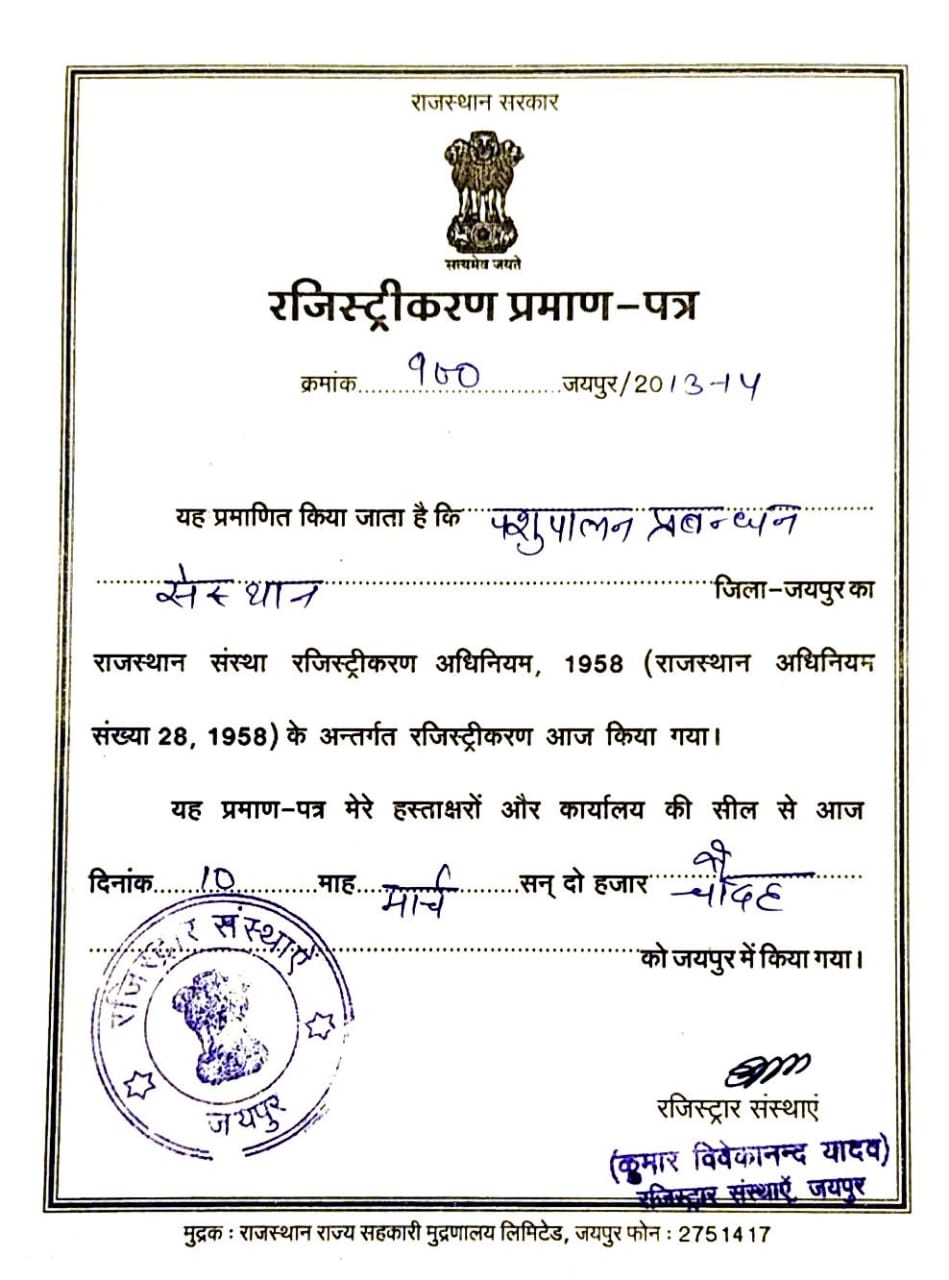 राजस्थान सरकार
सत्यमेव जयते
रजिस्ट्रीकरण प्रमाण-पत्र
क्रमांक.................जयपुर/2013-14
यह प्रमाणित किया जाता है कि पशुपालन प्रबन्धन
संस्थान जिला-जयपुर का
राजस्थान संस्था रजिस्ट्रीकरण अधिनियम, 1958 (राजस्थान अधिनियम
संख्या 28, 1958) के अन्तर्गत रजिस्ट्रीकरण आज किया गया।
यह प्रमाण-पत्र मेरे हस्ताक्षरों और कार्यालय की सील से आज
दिनांक 10 माह मार्च सन् दो हजार चौदह
को जयपुर में किया गया।
रजिस्ट्रार संस्थाऐं
जयपुर
रजिस्ट्रार संस्थाएं
(कुमार विवेकानन्द यादव)
रजिस्ट्रार संस्थाऐं, जयपुर
मुद्रक : राजस्थान राज्य सहकारी मुद्रणालय लिमिटेड, जयपुर फोन : 2751417